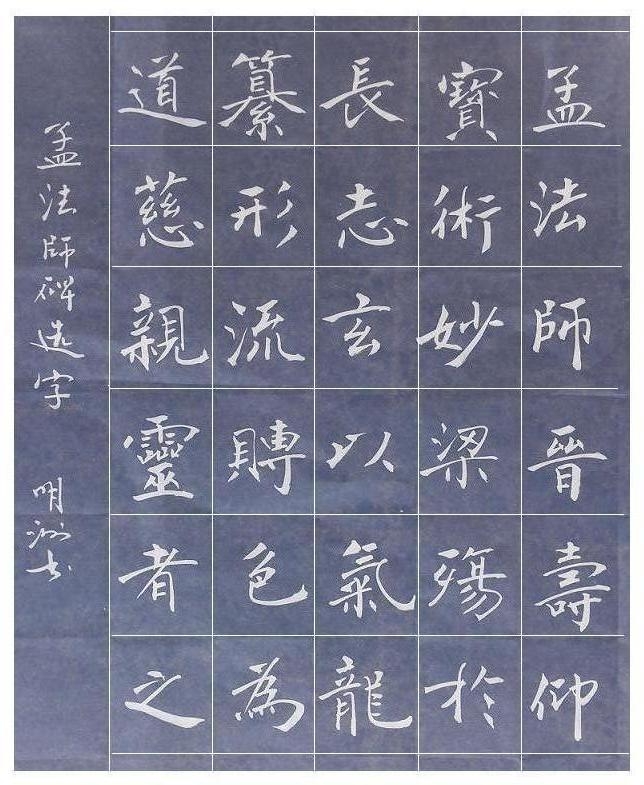 孟法師晉壽仰
寶術妙梁殤於
長志玄以氣龍
纂形流賻色為
道慈親靈者之
孟法師碑选字
明洲书